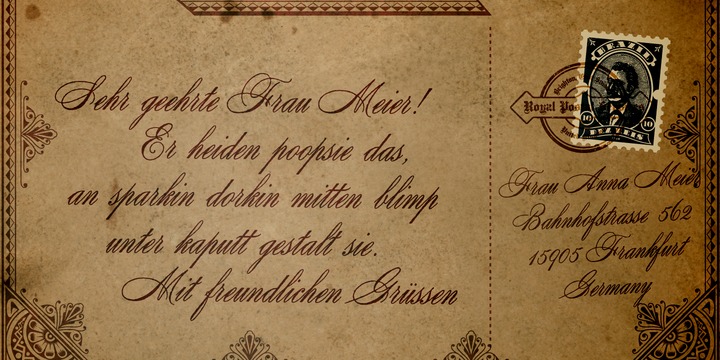 Sehr geehrte Frau Meier!
Er heiden poopsie das,
an sparkin dorkin mitten blimp
unter kaputt gestalt sie.
Mit freundlichen Grüssen
Royal Pos
10
10
Frau Anna Meier
Bahnhofstrasse 562
15905 Frankfurt
Germany